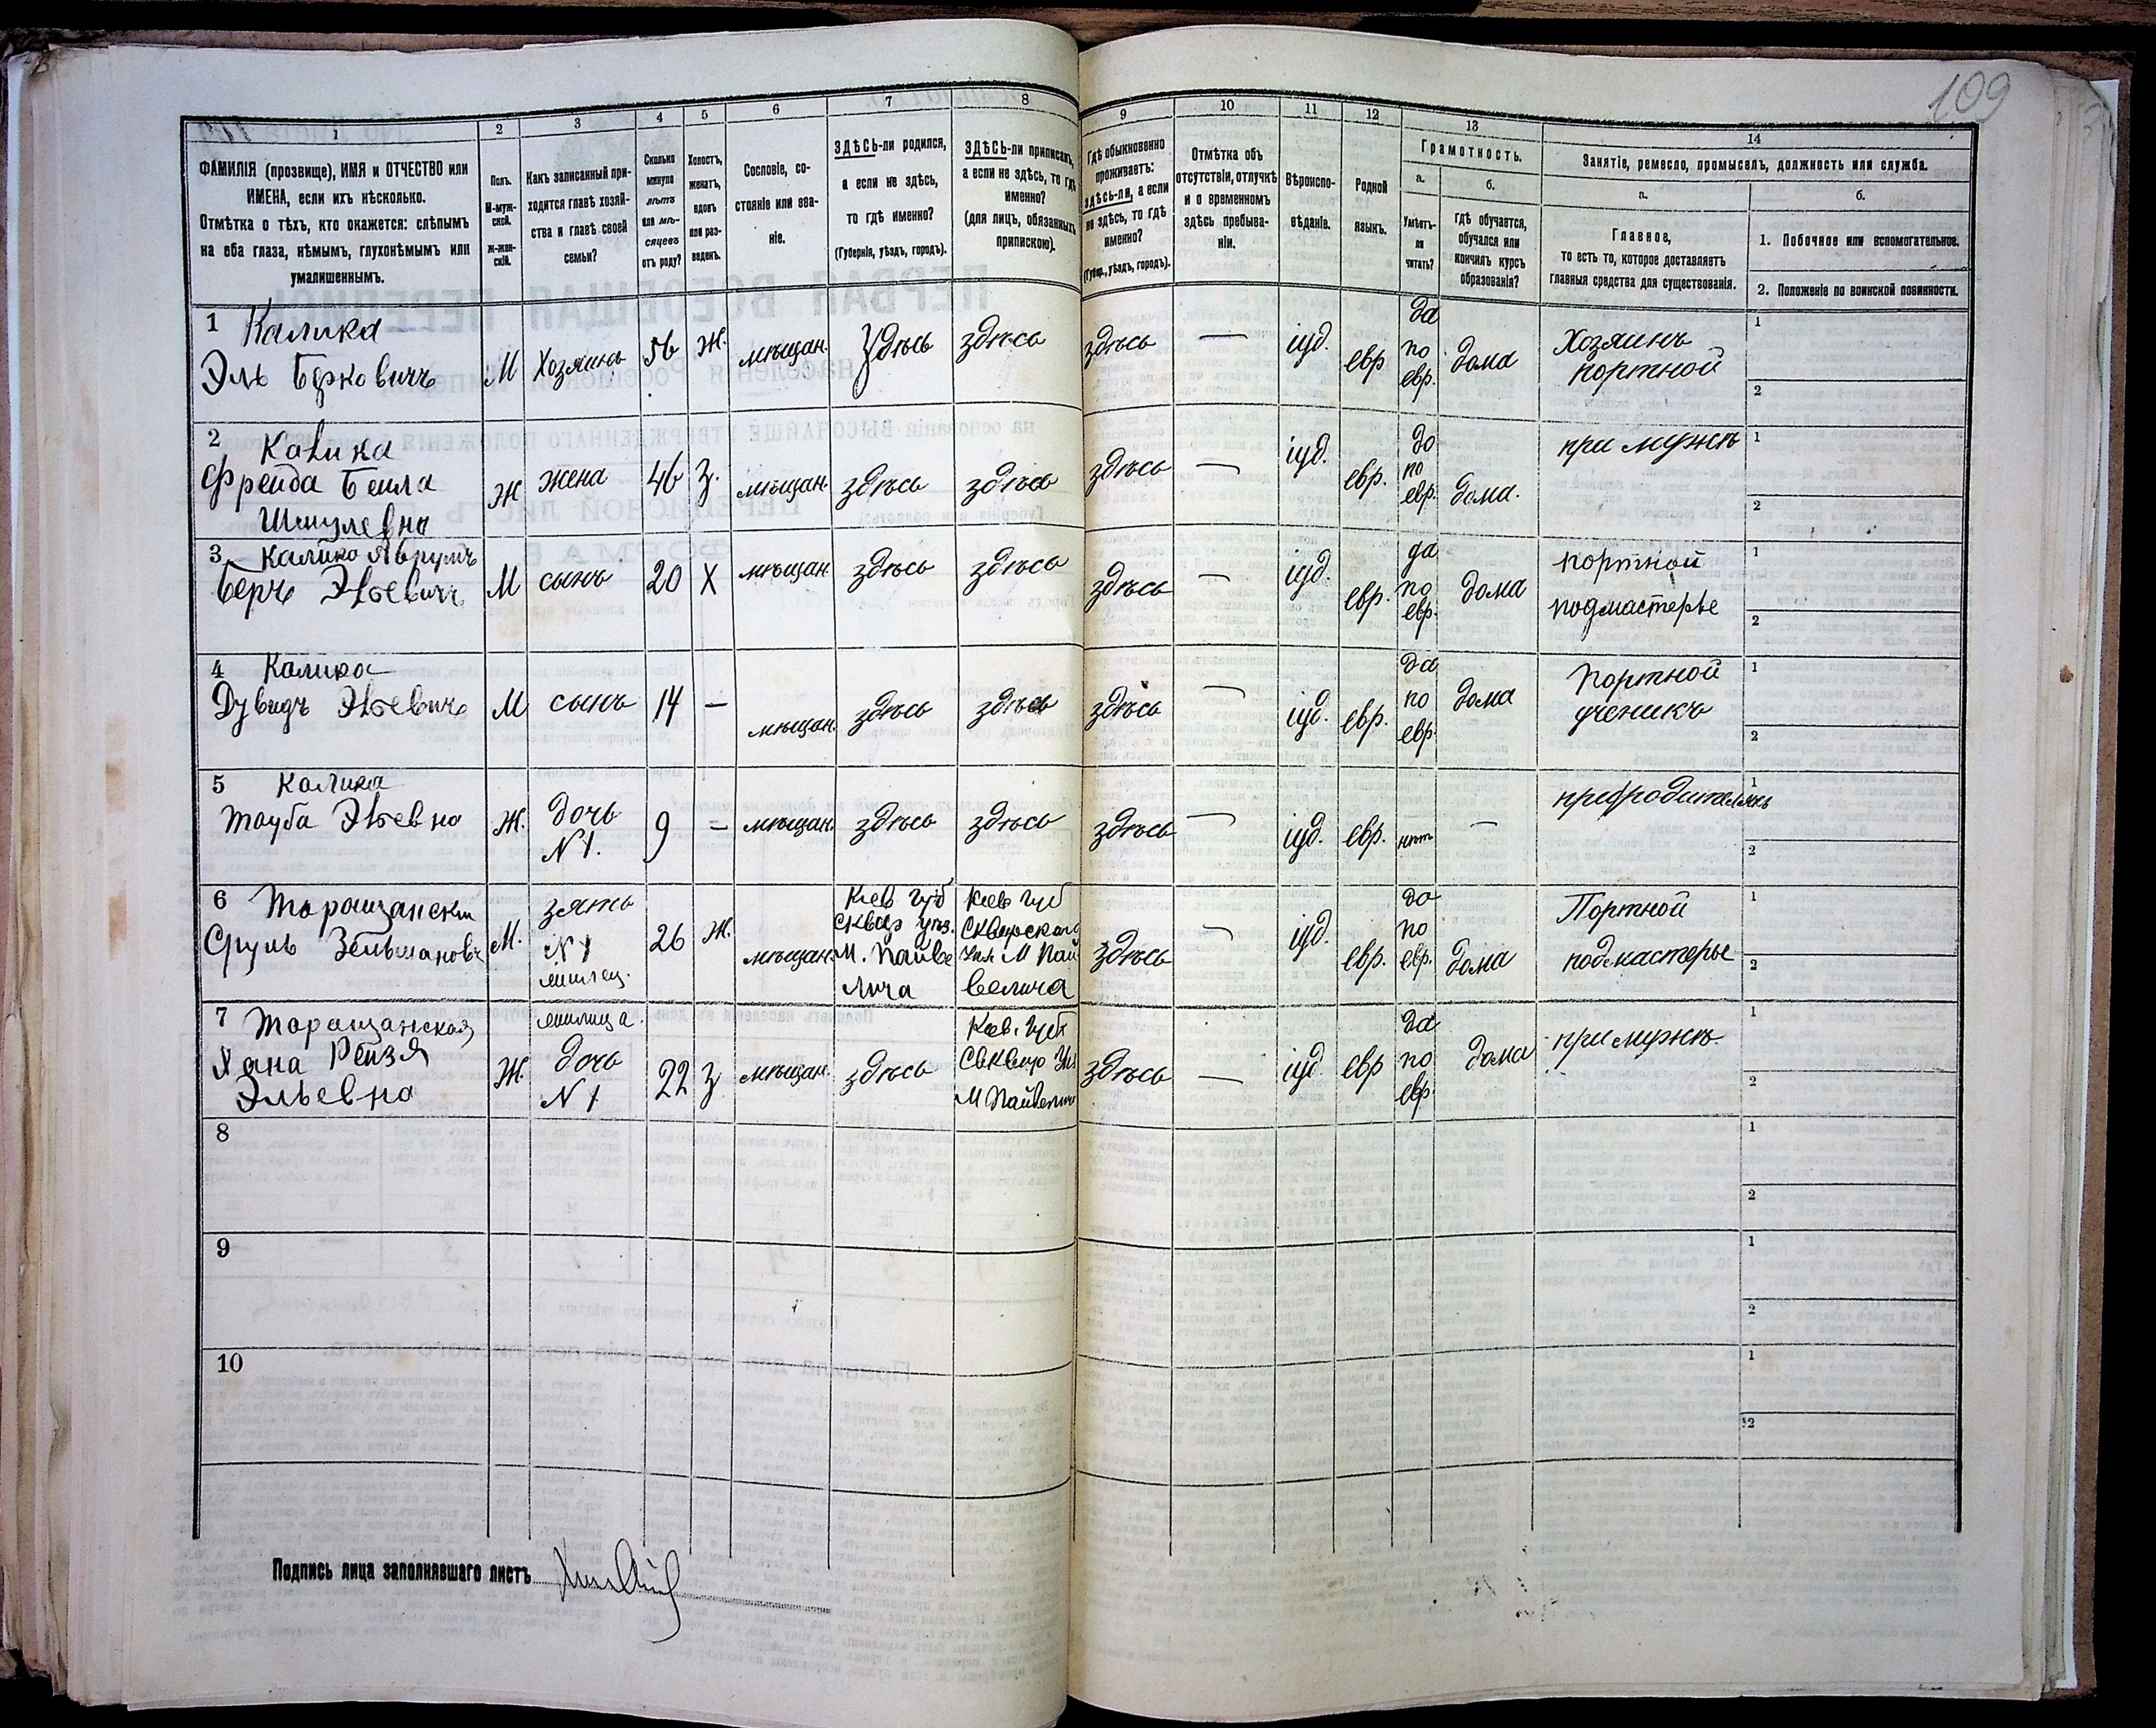 109
1
2
3
4
5
6
7
8
9
10
11
12
13
14
ФАМИЛІЯ (прозвище), ИМЯ и ОТЧЕСТВО или
ИМЕНА, если ихъ нѣсколько.
Отмѣтка о тѣхъ, кто окажется: слѣпымъ
на оба глаза, нѣмымъ, глухонѣмымъ или
умалишеннымъ.
Полъ.
М-муж-
ской.
Ж-жен-
скій.
Какъ записанный при-
ходится главѣ хозяй-
ства и главѣ своей
семьи?
Сколько
минуло
лѣтъ
или мѣ-
сяцевъ
отъ роду?
Холостъ,
женатъ,
вдовъ
или раз-
веденъ.
Сословіе, со-
стояніе или зва-
ніе.
ЗДѢСЬ-ли родился,
а если не здѣсь,
то гдѣ именно?
(Губернія, уѣздъ, городъ).
ЗДѢСЬ-ли приписанъ,
а если не здѣсь, то гдѣ
именно?
(для лицъ, обязанныхъ
припискою).
Гдѣ обыкновенно
проживаетъ:
здѣсь-ли, а если
не здѣсь, то гдѣ
именно?
(Губер., уѣздъ, городъ).
Отмѣтка объ
отсутствіи, отлучкѣ
и о временномъ
здѣсь пребыва-
ніи.
Вѣроиспо-
вѣданіе.
Родной
языкъ.
Грамотность.
а.
б.
Умѣетъ-
ли
читать?
гдѣ обучается,
обучался или
кончилъ курсъ
образованія?
Занятіе, ремесло, промыселъ, должность или служба.
а.
б.
Главное,
то есть то, которое доставляетъ
главныя средства для существованія.
1. Побочное или вспомогательное.
2. Положеніе по воинской повинности.
1 Калика
Эль Берковичъ
М
Хозяинъ
56
Ж.
мѣщан.
Здѣсь
здѣсь
здѣсь
—
іуд.
евр
да
по
евр.
дома
Хозяинъ
портной
1
2
2 Калика
Фрейда Бейла
Шмулевна
Ж
жена
46
З.
мѣщан.
здѣсь
здѣсь
здѣсь
—
іуд.
евр.
да
по
евр.
дома.
при мужѣ
1
2
3 Калика Аврумъ
Беръ Эльевичъ
М
сынъ
20
Х
мѣщан
здѣсь
здѣсь
здѣсь
—
іуд.
евр.
да
по
евр.
дома
портной
подмастерье
1
2
4 Калика
Дувидъ Эльевичъ
М
сынъ
14
—
мѣщан.
здѣсь
здѣсь
здѣсь
—
іуд.
евр.
да
по
евр.
дома
Портной
ученикъ
1
2
5 Калика
Тауба Эльевна
Ж.
дочь
N 1.
9
—
мѣщан.
здѣсь
здѣсь
здѣсь
—
іуд.
евр.
нѣтъ
—
при родителяхъ
1
2
6 Таращански
Сруль Зельмановъ
М.
зять
N 1
26
Ж.
мѣщан.
Кіев губ
Сквир уѣз.
М. Паиве
лича
Кіев губ
Сквирскаго
М Паи
велича
здѣсь
—
іуд.
евр.
да
по
евр.
дома
Портной
подмастерье
1
2
7 Таращанская
Хана Рейзя
Эльевна
Ж.
дочь
N 1
22
З
мѣщан.
здѣсь
Кіев. губ
М Паивелич
здѣсь
—
іуд
евр
да
по
евр.
дома
при мужѣ.
1
2
8
1
2
9
1
2
10
1
2
Подпись лица заполнявшаго листъ